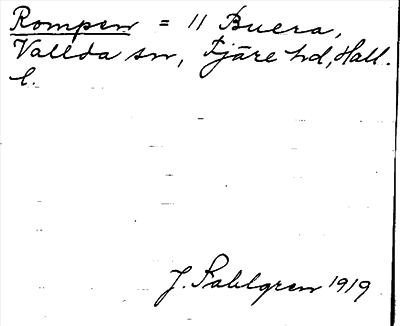 Rompen = 11 Buera,
Vallda sn, Fjäre hd, Hall.
l.
J. Sahlgren 1919